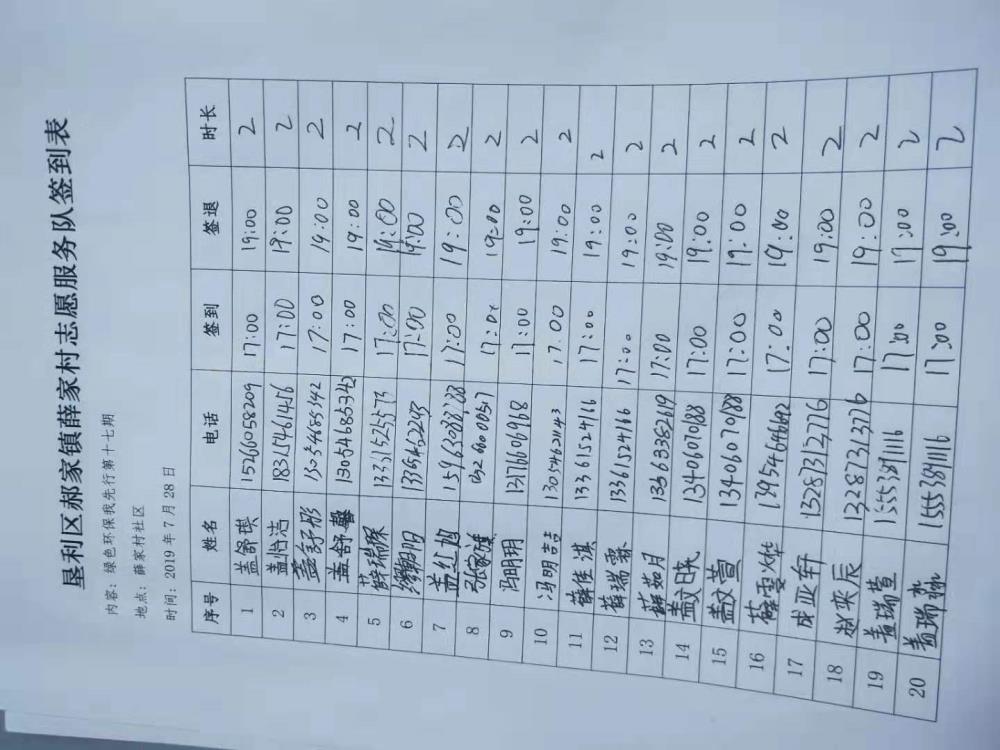 垦利区郝家镇薛家村志愿服务队签到表
内容：绿色环保我先行第十七期
地点：薛家村社区
时间：2019年7月28日
序号 姓名 电话 签到 签退 时长
1 盖舒琪 15266058209 17:00 19:00 2
2 盖怡洁 18315461456 17:00 19:00 2
3 盖舒彤 17:00 19:00 2
4 盖舒馨 13054685342 17:00 19:00 2
5 薛瑞琛 13315252573 17:00 19:00 2
6 17:00 19:00 2
7 17:00 19:00 2
8 张家旗 17:00 19:00 2
9 冯明玥 13176606968 17:00 19:00 2
10 冯明喆 13054621143 17:00 19:00 2
11 薛佳淇 13361524116 17:00 19:00 2
12 薛瑞霖 13361524116 17:00 19:00 2
13 薛茹月 13363382619 17:00 19:00 2
14 盖文晓 13406070188 17:00 19:00 2
15 盖文萱 13406070188 17:00 19:00 2
16 薛雯烨 13954646692 17:00 19:00 2
17 成亚轩 17:00 19:00 2
18 赵奕辰 13287313776 17:00 19:00 2
19 盖瑞萱 15553891116 17:00 19:00 2
20 盖瑞 15553891116 17:00 19:00 2